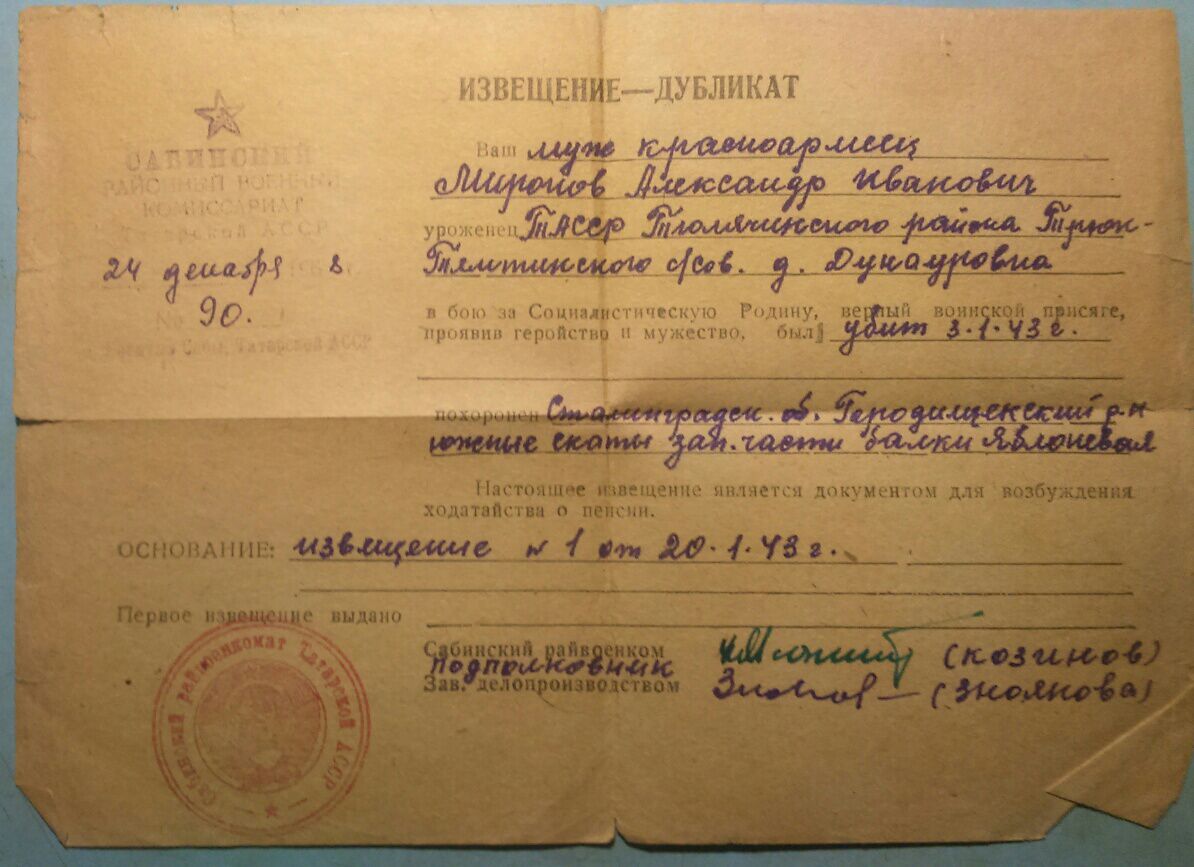 ИЗВЕЩЕНИЕ—ДУБЛИКАТ
САБИНСКИЙ
РАЙОННЫЙ ВОЕННЫЙ
КОМИССАРИАТ
Татарской АССР
24 декабря 196
90.
№
Сабы, Татарской АССР
Ваш муж красноармеец
Миронов Александр Иванович
уроженец ТАССР Тюлячинского района Трюк-
Тямтинского с/сов. д.
в бою за Социалистическую Родину, верный воинской присяге,
проявив геройство и мужество, был убит 3.1.43 г.
похоронен Сталинградск. об. Городищенский р-н
южные скаты зап. части балки Яблоневая
Настоящее извещение является документом для возбуждения
ходатайства о пенсии.
ОСНОВАНИЕ: извещение № 1 от 20.1.43 г.
Первое извещение выдано
Сабинский райвоенком
подполковник (козинов)
Зав. делопроизводством (Зноянова)
Сабинский райвоенкомат Татарской АССР